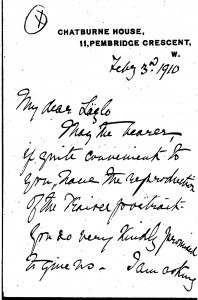 CHATBURNE HOUSE,
11, PEMBRIDGE CRESCENT,
W.
Feby 3rd 1910
My dear László
May the bearer
if quite convenient to
you, have the reproduction
of the Kaiser portrait
you so very kindly promised
to give us - I am asking